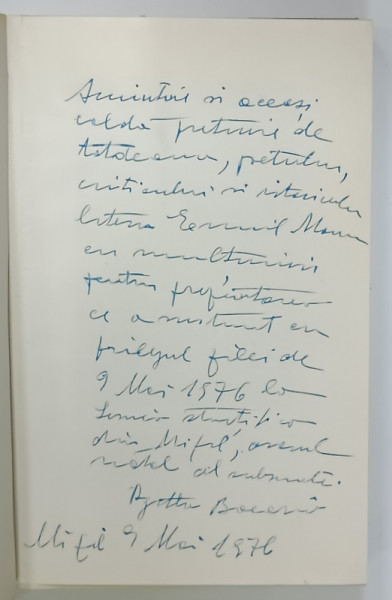 Amintire și aceeași
caldă prețuire de
totdeauna, poetului,
criticului și istoricului
literar Emil Manu
cu mulțumiri
pentru
ce a susținut cu
prilejul zilei de
9 Mai 1976 la
din Mizil, orașul
natal al subsemn.
Agatha Bacovia
Mizil 9 Mai 1976